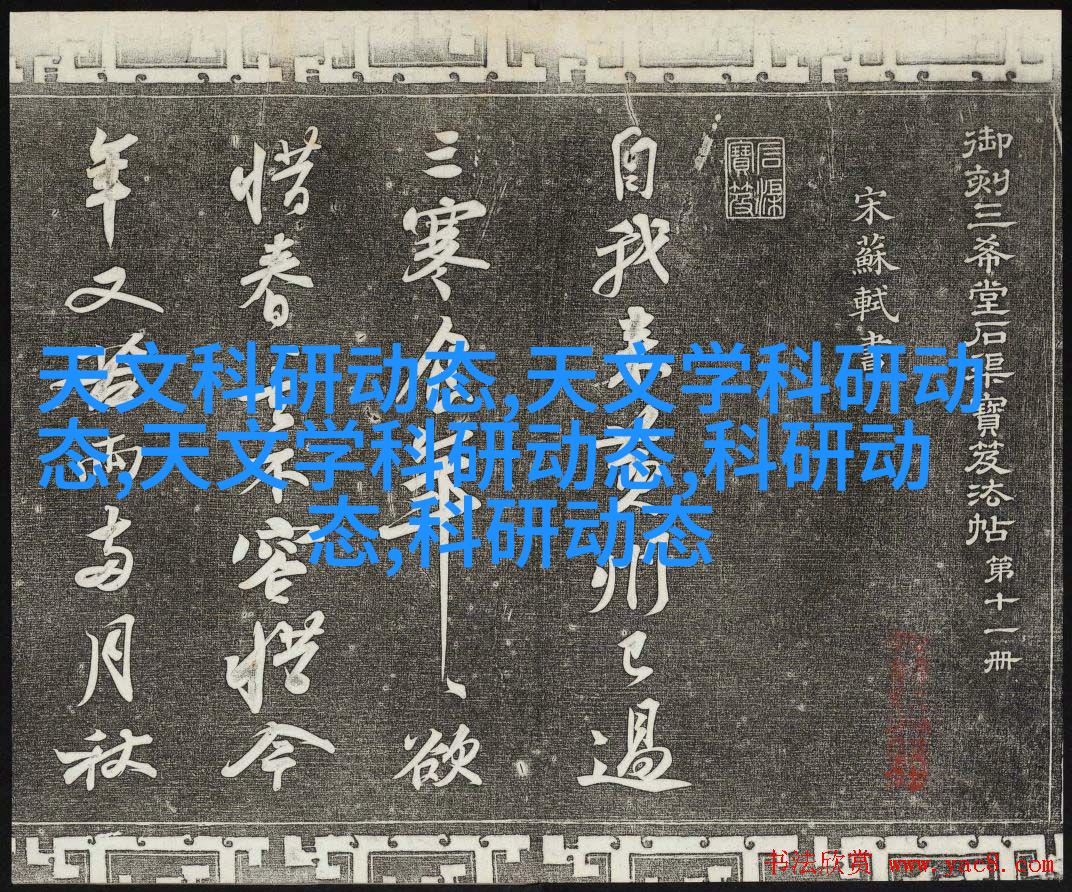 御刻三希堂石渠寶笈法帖第十一册
宋蘇軾書
石渠寶笈
自我来黄州已過
三寒食年、欲
惜春、去不容惜今
年又苦雨兩月秋
天文科研动态,天文学科研动
态,天文学科研动态,科研动
态,科研动态
书法欣赏 www.yac8.com